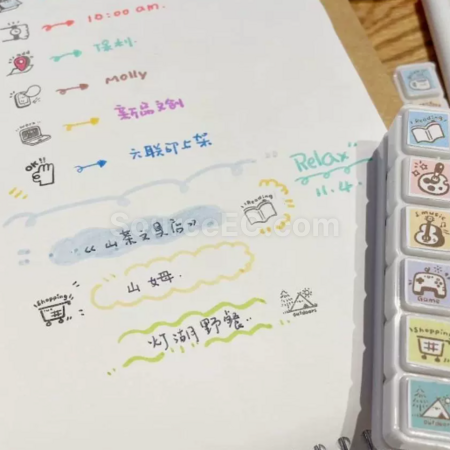 10:00 am.
保利.
Molly
新品文创
OK
六联印上架
Relax
11.4.
Reading
《山茶文具店》
山姆.
Shopping
outdoors
灯湖野餐..
Reading
music
Game
Shopping